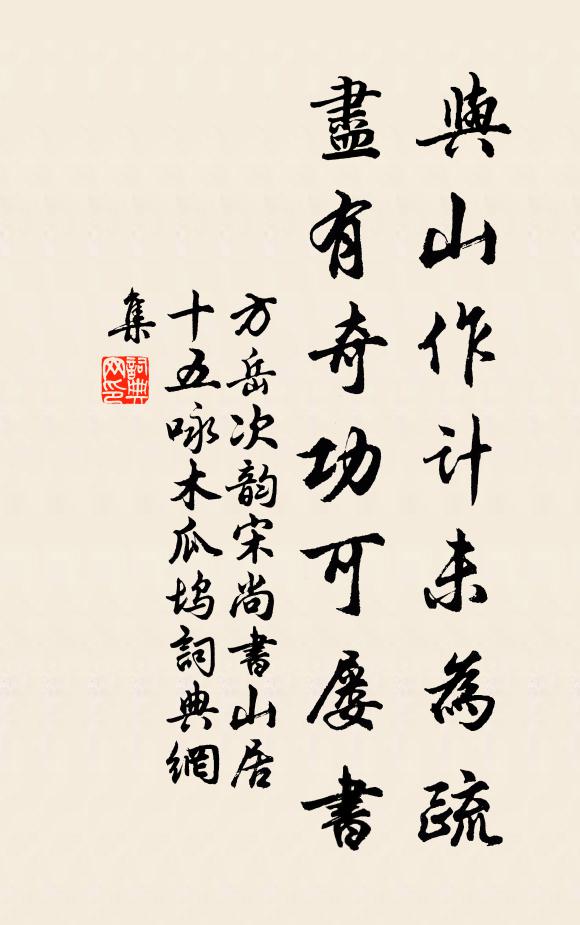 與山作计未為疏
盡有奇功可屡書
方岳次韵宋尚書山居
十五咏木瓜坞詞典網
集
詞典网印